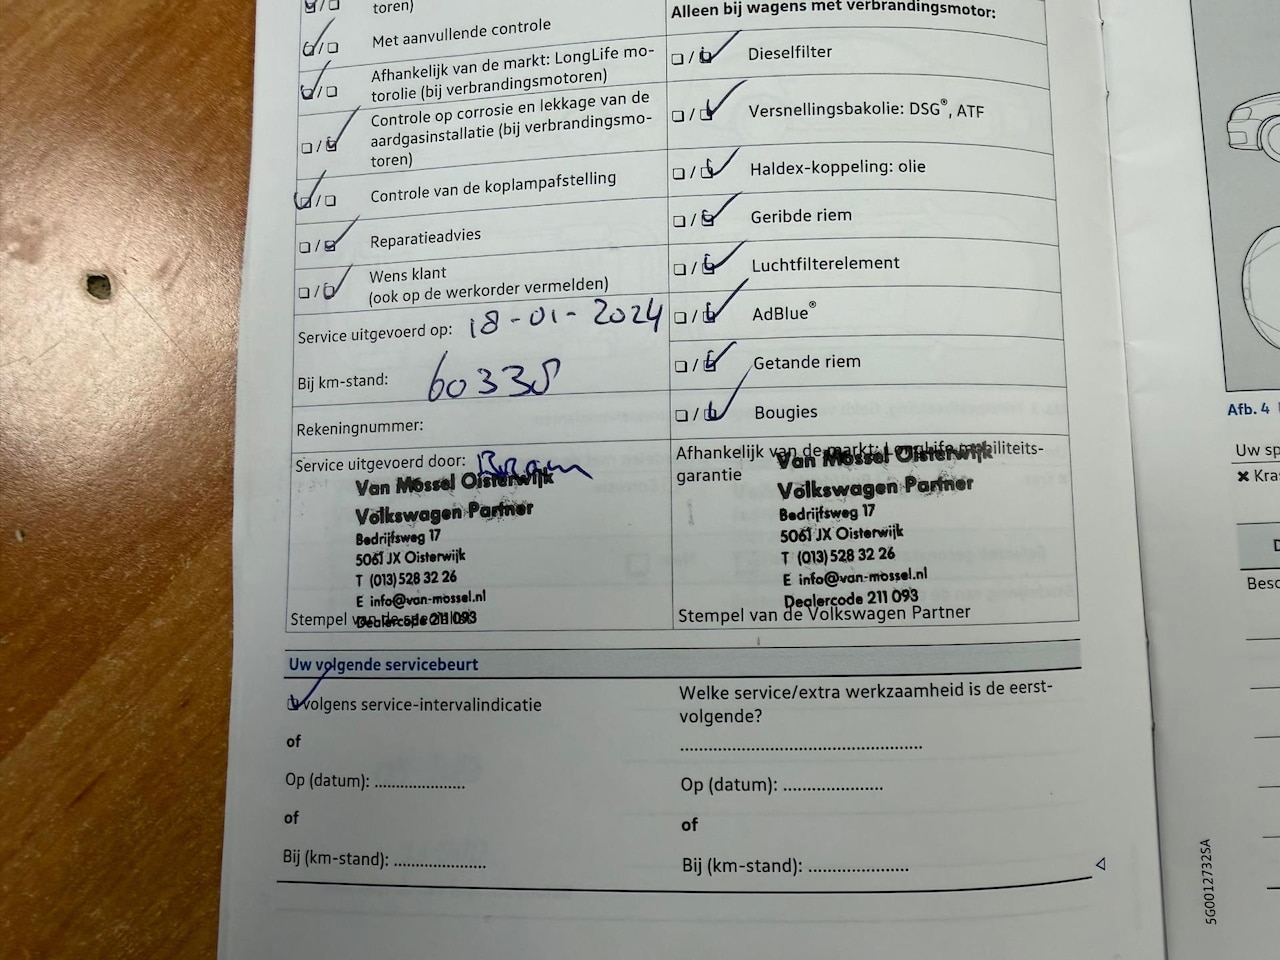 toren)
Met aanvullende controle
Afhankelijk van de markt: LongLife mo-
torolie (bij verbrandingsmotoren)
Controle op corrosie en lekkage van de
aardgasinstallatie (bij verbrandingsmo-
toren)
Controle van de koplampafstelling
Reparatieadvies
Wens klant
(ook op de werkorder vermelden)
Service uitgevoerd op: 18-01-2024
Bij km-stand: 60338
Rekeningnummer:
Service uitgevoerd door: Bram
Van Mossel Oisterwijk
Volkswagen Partner
Bedrijfsweg 17
5061 JX Oisterwijk
T (013) 528 32 26
E info@van-mossel.nl
Dealercode 211 093
Stempel van de
Alleen bij wagens met verbrandingsmotor:
Dieselfilter
Versnellingsbakolie: DSG®, ATF
Haldex-koppeling: olie
Geribde riem
Luchtfilterelement
AdBlue®
Getande riem
Bougies
Afhankelijk van de markt: LongLife mobiliteits-
garantie
Van Mossel Oisterwijk
Volkswagen Partner
Bedrijfsweg 17
5061 JX Oisterwijk
T (013) 528 32 26
E info@van-mossel.nl
Dealercode 211 093
Stempel van de Volkswagen Partner
Uw volgende servicebeurt
volgens service-intervalindicatie
of
Op (datum): ....................
of
Bij (km-stand): ....................
Welke service/extra werkzaamheid is de eerst-
volgende?
..................................................
Op (datum): ......................
of
Bij (km-stand): ......................
Afb. 4
Uw sp
Kra
D
Besc
5G0012732SA